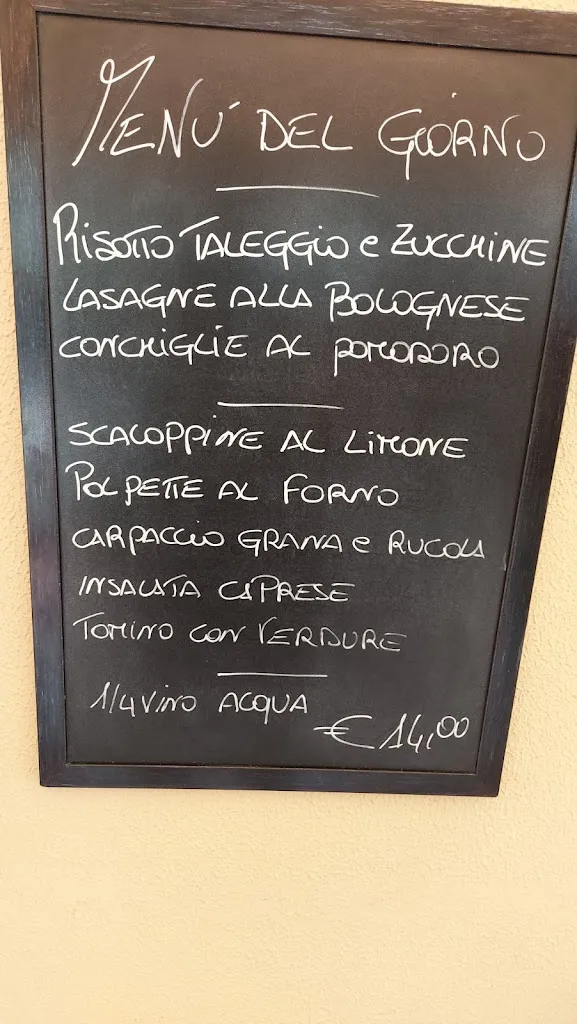 MENU' DEL GIORNO
RISOTTO TALEGGIO e ZUCCHINE
LASAGNE ALLA BOLOGNESE
CONCHIGLIE AL POMODORO
SCALOPPINE AL LIMONE
POLPETTE AL FORNO
CARPACCIO GRANA e RUCOLA
INSALATA CAPRESE
TOMINO CON VERDURE
1/4 VINO ACQUA
€ 14,00